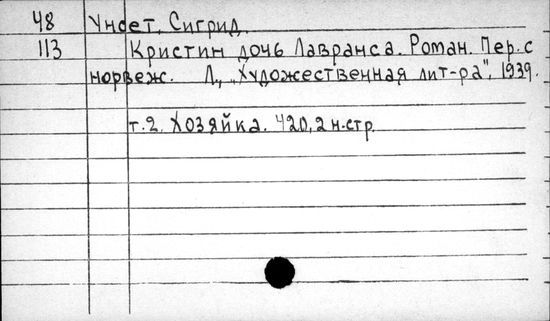 48 Унсет, Сигрид.
113 Кристин дочь Лавранса. Роман. Пер. с
норвеж. Л., "Художественная лит-ра", 1939.
т. 2. Хозяйка. 420, 2 н. стр.